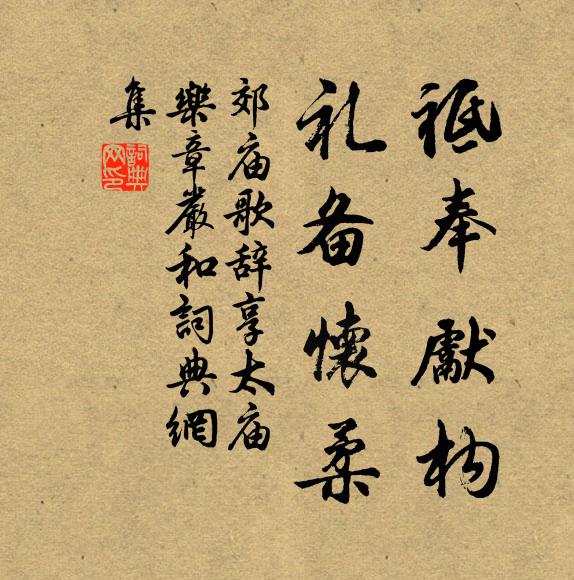 祗奉獻构
礼备懷柔
郊庙歌辞享太庙
樂章嚴和詞典網
集
詞典網印